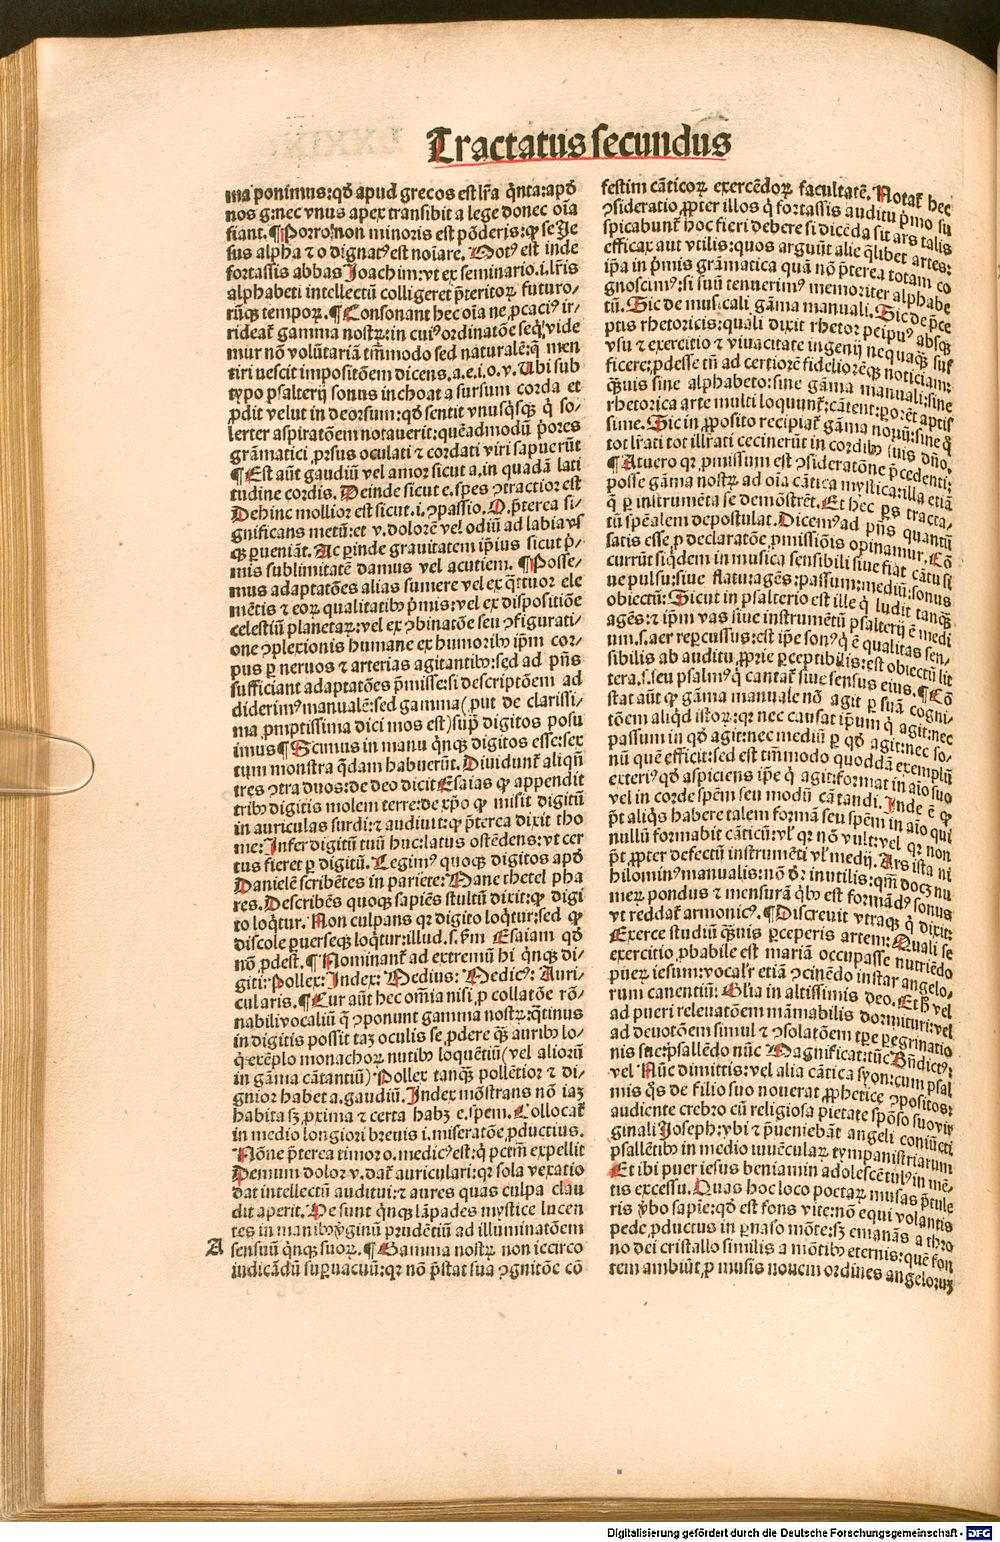 Tractatus secundus
ma ponimus: qđ apud grecos est lr̃a q̃nta: apđ
nos g: nec vnus apex transibit a lege donec oĩa
fiant. ¶ Porro non minoris est põderis: ꝙ se Je
sus alpha ⁊ o dignatꝰ est noĩare. Motꝰ est inde
fortassis abbas Joachim: vt ex seminario .i. lr̃is
alphabeti intellectũ colligeret p̃teritoꝝ futuro⸗
rũqꝫ tempoꝝ. ¶ Consonant hec oĩa ne ꝓcaciꝰ ir⸗
rideat̃ gamma nostꝝ: in cuiꝰ ordinatõe seq̃ vide
mur nõ volũtariã tm̃modo sed naturalẽ: q̃ men
tiri nescit impositõem dicens .a.e.i.o.v. Ubi sub
typo psalterij sonus inchoat a sursum corda et
ꝓdit velut in deorsum: qđ sentit vnusq̃sqꝫ q̃ so⸗
lerter aspiratõem notauerit: quẽadmodũ p̃ores
grãmatici ꝓrsus oculati ⁊ cordati viri sapuerũt
¶ Est aũt gaudiũ vel amor sicut a, in quadã lati
tudine cordis. Deinde sicut e. spes ꝯtractior est
Dehinc mollior est sicut .i. ꝯpassio. O. p̃terea si⸗
gnificans metũ: et v. dolorẽ vel odiũ ad labia vs
qꝫ ꝑueniãt. Ac ꝑinde grauitatem ip̃ius sicut p̃⸗
mis sublimitatẽ damus vel acutiem. ¶ Posse⸗
mus adaptatões alias sumere vel ex q̃ttuor ele
mẽtis ⁊ eoꝝ qualitatibꝫ p̃mis: vel ex dispositiõe
celestiũ planetaꝝ: vel ex ꝯbinatõe seu ꝯfigurati⸗
one ꝯplexionis humane ex humoribꝫ ip̃m cor⸗
pus ꝑ neruos ⁊ arterias agitantibꝫ: sed ad p̃ñs
sufficiant adaptatões p̃misse: si descriptõem ad
diderimꝰ manualẽ: sed gamma (put de clarissi⸗
ma ꝓmptissima dici mos est) sup̃ digitos posu
imus ¶ Scimus in manu q̃nqꝫ digitos esse: sex
tum monstra q̃dam habuerũt. Diuidunt̃ aliqñ
tres ꝯtra duos: de deo dicit Esaias ꝙ appendit
tribꝫ digitis molem terre: de xp̃o ꝙ misit digitũ
in auriculas surdi: ⁊ audiuit: ꝙ p̃terea dixit tho
me: Infer digitũ tuũ huc: latus ostẽdens: vt cer
tus fieret ꝑ digitũ. Legimꝰ quoqꝫ digitos apđ
Danielẽ scribẽtes in pariete: Mane thetel pha
res. Describẽs quoqꝫ sapiẽs stultũ dixit: ꝙ digi
to loq̃tur. Non culpans qꝛ digito loq̃tur: sed ꝙ
discole ꝑuerseqꝫ loq̃tur: illud .s. ẜm Esaiam qđ
nõ ꝓdest. ¶ Nominant̃ ad extremũ hi q̃nqꝫ di⸗
giti: Pollex: Index: Medius: Medicꝰ: Auri⸗
cularis. ¶ Cur aũt hec om̃ia nisi ꝓ collatõe rõ⸗
nabili vocaliũ q̃ ꝯponunt gamma nostꝝ: q̃tinus
in digitis possit taꝫ oculis se ꝓdere q̃ꝫ auribꝫ lo⸗
q̃ exẽplo monachoꝝ nutibꝫ loquẽtiũ (vel aliorũ
in gãma cãtantiũ) Pollex tanqꝫ pollẽtior ⁊ di⸗
gnior habet a. gaudiũ. Index mõstrans nõ iaꝫ
habita sꝫ ꝓxima ⁊ certa habꝫ e. spem. Collocat̃
in medio longiori breuis i. miseratõe ꝓductius.
Nõne p̃terea timor o. medicꝰ est: q̃ pctm̃ expellit
Demum dolor v. dat̃ auriculari: qꝛ sola vexatio
dat intellectũ auditui: ⁊ aures quas culpa clau
dit aperit. He sunt q̃nqꝫ lãpades mystice lucen
tes in manibꝫ ṽginũ prudẽtiũ ad illuminatõem
A sensuũ q̃nqꝫ suoꝝ. ¶ Gamma nostꝝ non iccirco
iudicãdũ suꝑuacuũ: qꝛ nõ p̃stat sua ꝯgnitõe cõ
festim cãticoꝝ exercẽdoꝝ facultatẽ. Notat̃ hec
ꝯsideratio ꝓpter illos q̃ fortassis auditu p̃mo su
spicabunt̃ hoc fieri debere si dicẽda sit ars talis
efficax aut vtilis: quos arguũt alie q̃libet artes:
ip̃a in p̃mis grãmatica quã nõ p̃terea totam co
gnoscimꝰ: si suũ tenuerimꝰ memoriter alphabe
tũ. Sic de musicali gãma manuali. Sic de p̃ce
ptis rhetoricis: quali dixit rhetor p̃cipuꝰ absqꝫ
vsu ⁊ exercitio ⁊ viuacitate ingenij nequaqꝫ suf
ficere: ꝓdesse tñ ad certiorẽ fidelioreqꝫ noticiam:
q̃ꝫuis sine alphabeto: sine gãma manuali: sine
rhetorica arte multi loquunt̃: cãtent: ꝑorẽt aptis
sime. Sic in ꝓposito recipiat̃ gãma nouũ: sine q̃
tot lr̃ati tot illr̃ati cecinerũt in cordibꝫ suis dño,
¶ At vero qꝛ ꝓmissum est ꝯsideratõne p̃cedenti:
posse gãma nostꝝ ad oĩa cãtica mystica: illa etiã
q̃ ꝑ instrumẽta se demõstrẽt. Et hec ꝑs tracta⸗
tũ spẽalem depostulat. Dicemꝰ ad p̃ñs quantũ
satis esse ꝓ declaratõe ꝓmissiõis opinamur. Cõ
currũt siq̃dem in musica sensibili siue fiat cãtu si
ue pulsu: siue flatu: agẽs: passum: mediũ: sonus
obiectũ: Sicut in psalterio est ille q̃ ludit tanqꝫ
agẽs: ⁊ ip̃m vas siue instrumẽtũ psalterij ẽ medi
um .s. aer reꝑcussus: est ip̃e sonꝰ q̃ ẽ qualitas sen⸗
sibilis ab auditu ꝓprie ꝑceptibilis: est obiectũ lit
tera .s. seu psalmꝰ q̃ cantat̃ siue sensus eius. ¶ Cõ
stat aũt ꝙ gãma manuale nõ agit ꝑ suã cogni⸗
tõem aliq̃d istoꝝ: qꝛ nec causat ip̃um q̃ agit: nec
passum in qđ agit: nec mediũ ꝑ qđ agit: nec so⸗
nũ quẽ efficit: sed est tm̃modo quoddã exemplũ
exteriꝰ qđ aspiciens ip̃e q̃ agit: format in aĩo suo
vel in corde spẽm seu modũ cãtandi. Inde ẽ ꝙ
p̃t aliq̃s habere talem formã seu spẽm in aĩo qui
nullũ formabit cãticũ: vl̃ qꝛ nõ vult: vel qꝛ non
p̃t ꝓpter defectũ instrumẽti vl̃ medij. Ars ista ni
hilominꝰ manualis: nõ đr inutilis: qm̃ docꝫ nu
meꝝ pondus ⁊ mensurã q̃bꝫ est formãdꝰ sonus
vt reddat̃ armonicꝰ. ¶ Discreuit vtraqꝫ q̃ dixit:
Exerce studiũ q̃ꝫuis ꝑceperis artem: Quali se
exercitio ꝓbabile est mariã occupasse nutriẽdo
pueꝝ iesum: vocalr̃ etiã ꝯcinẽdo instar angelo⸗
rum canentiũ: Glia in altissimis deo. Et h̃ vel
ad pueri releuatõem mãmabilis dormituri: vel
ad deuotõem simul ⁊ ꝯsolatõem tꝑe ꝑegrinatio
nis sue: psallẽdo nũc Magnificat: tũc Bñdictꝰ:
vel Nũc dimittis: vel alia cãtica syon: cum psal
mis q̃s de filio suo nouerat ꝓphetice ꝯpositos:
audiente crebro cũ religiosa pietate spõso suo vir
ginali Joseph: vbi ⁊ p̃ueniebãt angeli coniũcti
psallẽtibꝫ in medio iuuẽculaꝝ tympanistriarum
Et ibi puer iesus beniamin adolescẽtulꝰ in mẽ⸗
tis excessu. Quas hoc loco poetaꝝ musas p̃tule
ris ṽbo sapĩe: qđ est fons vite: nõ equi volantis
pede ꝓductus in ꝑnaso mõte: sꝫ emanãs a thro
no dei cristallo similis a mõtibꝫ eternis: quẽ fon
tem ambiũt ꝓ musis nouem ordines angeloruꝫ
Digitalisierung gefördert durch die Deutsche Forschungsgemeinschaft - DFG